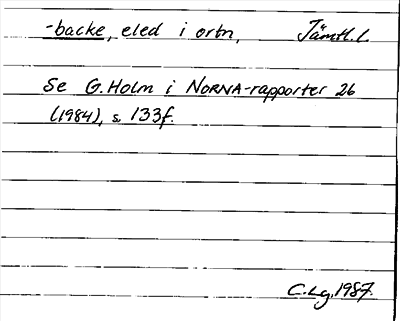 -backe, eled i ortn, Jämtl.l.
Se G. Holm i NORNA-rapporter 26
(1984), s. 133f.
C.Lg. 1987.